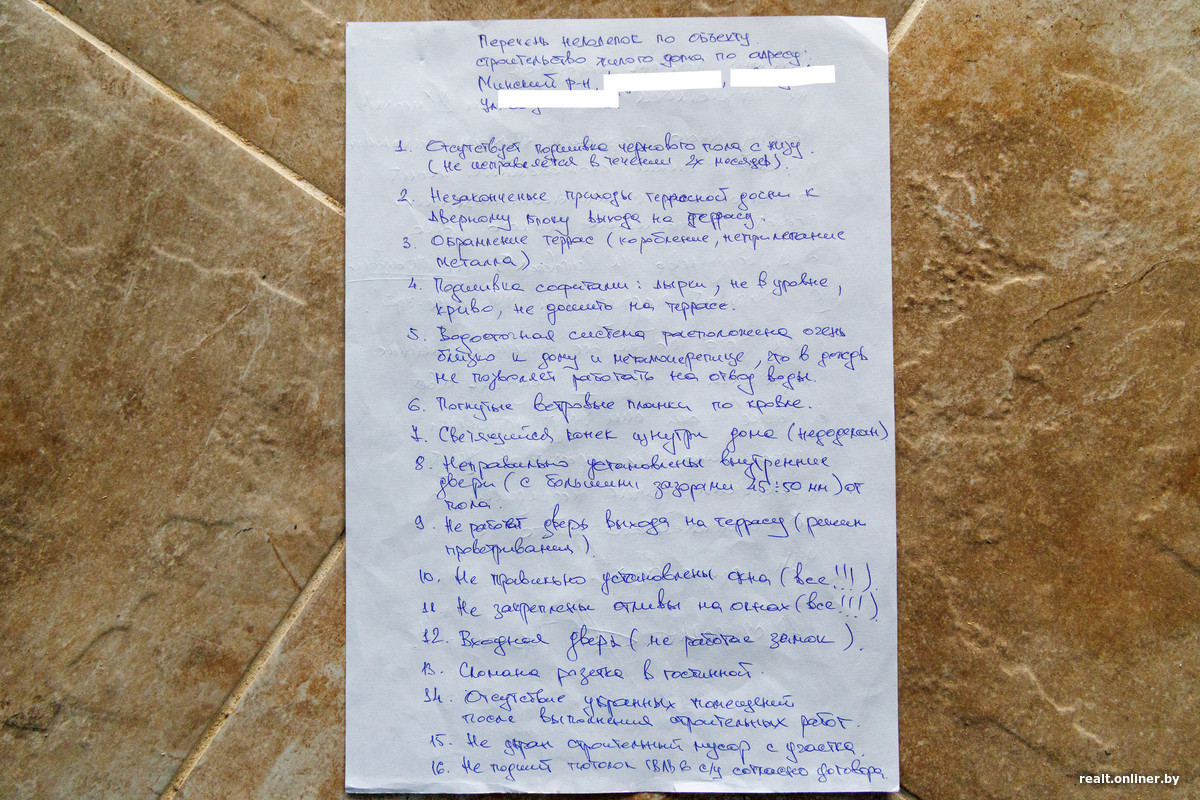 Перечень неполадок по объекту
строительство жилого дома по адресу:
Минский р-н,
ул.
1. Отсутствует подшивка чернового пола с низу.
(не исправляется в течении 2х месяцев).
2. Незаконченые приходы террасной доски к
дверному блоку выхода на террасу.
3. Обрамление террас (коробление, неприлегание
металла).
4. Подшивка софитами: дырки, не в уровне,
криво, не дошить на террасе.
5. Водосточная система расположена очень
близко к дому и металочерепице, что в дождь
не позволяет работать на отвод воды.
6. Погнутые ветровые планки по кровле.
7. Светящийся конек изнутри дома (недоделан)
8. Неправильно установлены внутренние
двери (с большими зазорами 45÷50 мм) от
пола.
9. Не работает дверь выхода на террасу (режим
проветривания).
10. Не правильно установлены окна (все!!!)
11 Не закреплены отливы на окнах (все!!!)
12. Входная дверь (не работае замок).
13. Сломана розетка в гостинной.
14. Отсутствие убранных помещений
после выполнения строительных работ.
15. Не убран строительный мусор с участка.
16. Не подшит потолок в с/у согласно договора
realt.onliner.by